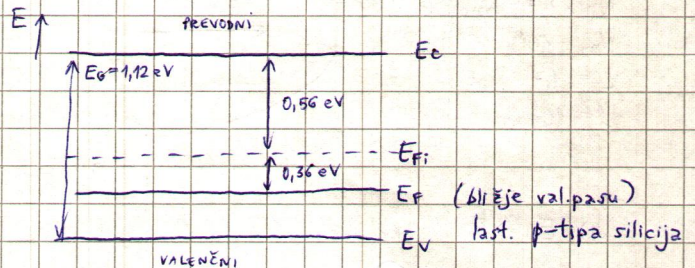 E
PREVODNI
Ec
EG=1,12 eV
0,56 eV
EFi
0,36 eV
EF (bližje val.pasu)
last. p-tipa silicija
EV
VALENČNI